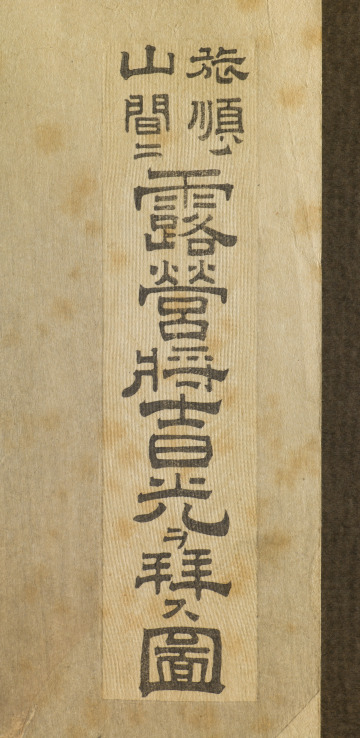 旅順ノ
山間ニ
露營將士日光ヲ拝ス圖